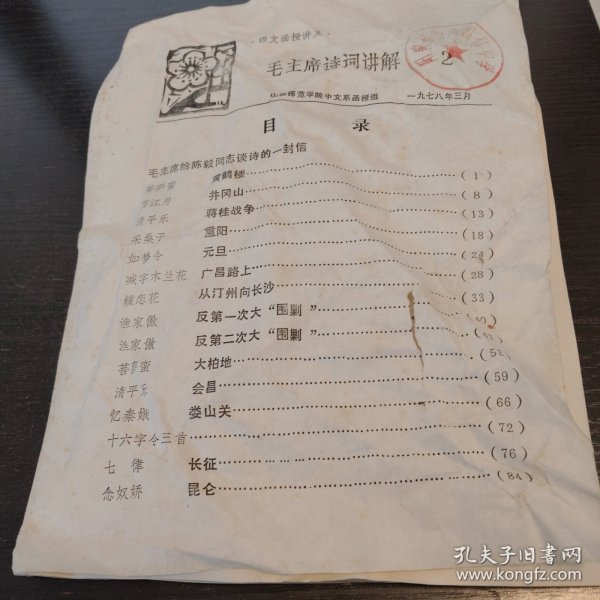 ·语文函授讲义·
毛主席诗词讲解 2
师范学院中文系函授组 一九七八年三月
目录
毛主席给陈毅同志谈诗的一封信
菩萨蛮 黄鹤楼……(1)
西江月 井冈山……(8)
清平乐 蒋桂战争……(13)
采桑子 重阳……(18)
如梦令 元旦……(24)
减字木兰花 广昌路上……(28)
蝶恋花 从汀州向长沙……(33)
渔家傲 反第一次大“围剿”……(40)
渔家傲 反第二次大“围剿”……
菩萨蛮 大柏地……(52)
清平乐 会昌……(59)
忆秦娥 娄山关……(66)
十六字令三首……(72)
七律 长征……(76)
念奴娇 昆仑……(84)
孔夫子旧书网
www.kongfz.com